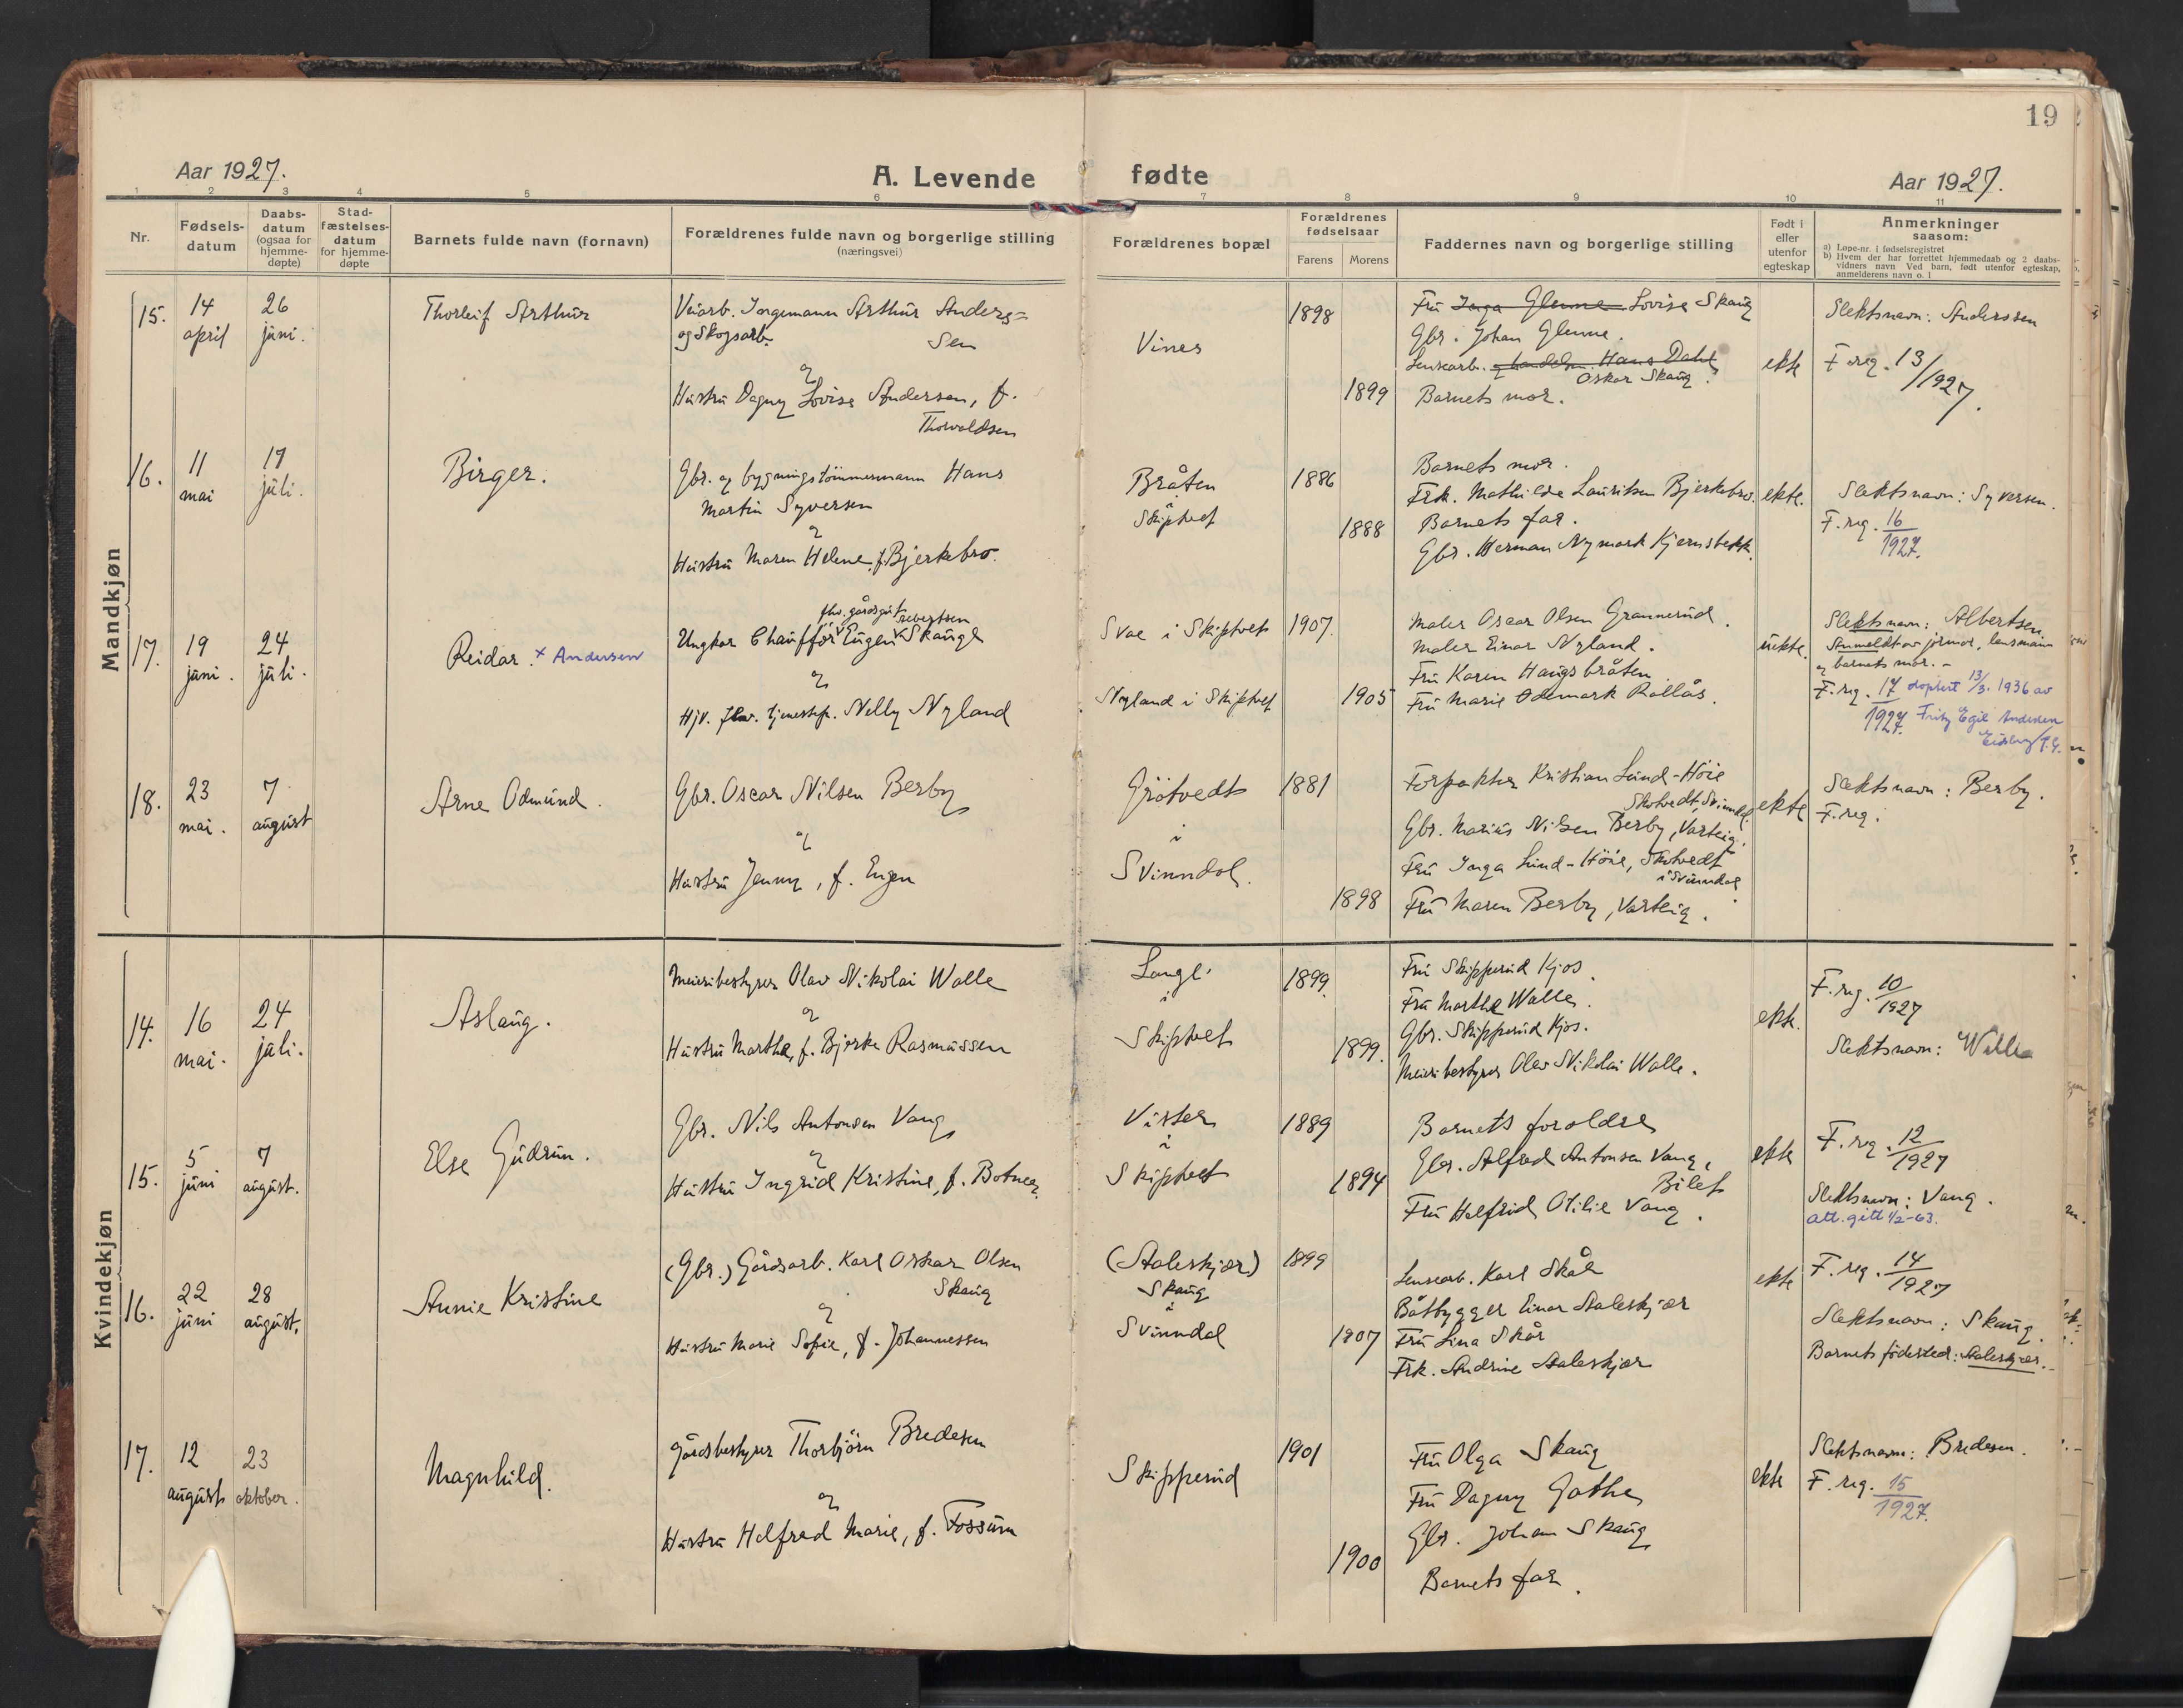 19
Aar 1927.
A. Levende fødte
Aar 1927.
1 2 3 4 5 6 7 8 9 10 11
Nr.
Fødsels-
datum
Daabs-
datum
(ogsaa for
hjemme-
døpte)
Stad-
fæstelses-
datum
for hjemme-
døpte
Barnets fulde navn (fornavn)
Forældrenes fulde navn og borgerlige stilling
(næringsvei)
Forældrenes bopæl
Forældrenes
fødselsaar
Farens Morens
Faddernes navn og borgerlige stilling
Født i
eller
utenfor
egteskap
Anmerkninger
saasom:
a) Løpe-nr. i fødselsregistret
b) Hvem der har forrettet hjemmedaab og 2 daabs-
vidners navn Ved barn, født utenfor egteskap,
anmelderens navn o. l
Mandkjøn
15.
14
april
26
juni.
Thorleif Arthur
Veiarb. Ingemann Arthur Anders=
og Skogsarb. sen
og
Hustru Dagny Lovise Andersen, f.
Thorvaldsen
Viner
1898
1899
Fru Inga Glenne Lovise Skaug
Gbr. Johan Glenne.
Lensearb. og handelsm. Hans Dahl
Oskar Skaug.
Barnets mor.
ekte
Slektsnavn: Anderssen
F. reg. 13/1927.
16.
11
mai
17
juli.
Birger.
Gbr. og bygningstömmermann Hans
Martin Syversen
og
Hustru Maren Helene, f. Bjerkebro.
Bråten
i
Skiptvet
1886
1888
Barnets mor.
Frk. Mathilde Lauritsen Bjerkebro.
Barnets far.
Gbr. Herman Nymark Kjernsbekk.
ekte.
Slektsnavn: Syversen.
F. reg. 16
1927.
17.
19
juni.
24
juli.
Reidar. x Andersen
fhv. gårdsgut
Ungkar Chauffør Eugen Skaugl
og
Hjv. fhv. tjenestep. Nelly Nyland
Svae i Skiptvet
Nyland i Skiptvet
1907.
1905
Maler Oscar Olsen Grannerud.
Maler Einar Nyland.
Fru Karen Haugsbråten
Fru Marie Odemark Rollås.
uekte.
Slektsnavn: Albertsen
Anmeldt av jormor, lensmann
og barnets mor. -
F. reg. 17 adoptert 13/3. 1936 av
1927. Fritz Egil Andersen
18.
23
mai.
7
august
Arne Odmund.
Gbr. Oscar Nilsen Berby
og
Hustru Jenny, f. Engen
Grötvedt
i
Svinndal.
1881
1898
Forpakter Kristian Lund-Höie
Skotvedt, Svinndal.
Gbr. Marius Nilsen Berby, Varteig.
Fru Inga Lund-Höie, Skotvedt
i Svinndal
Fru Maren Berby, Varteig.
ekte
Slektsnavn: Berby.
F. reg.
Kvindekjøn
14.
16
mai.
24
juli.
Aslaug.
Meieribestyrer Olav Nikolai Walle
og
Hustru Marthe, f. Bjerke Rasmussen
Langli
i
Skiptvet
1899.
1899.
Fru Skipperud Kjos.
Fru Marthe Walle.
Gbr. Skipperud Kjos.
Meieribestyrer Olav Nikolai Walle.
ekte.
F. reg. 10
1927
Slektsnavn: Walle
15.
5
juni
7
august.
Else Gudrun.
Gbr. Nils Antonsen Vang
og
Hustru Ingrid Kristine, f. Botner
Vister
i
Skiptvet
1889
1894
Barnets foreldre
Gbr. Alfred Antonsen Vang,
Bilet
Fru Helfrid Otilie Vang.
ekte
F. reg. 12
1927
Slektsnavn: Vang.
att. gitt 1/2-63.
16.
22
juni
28
august.
Annie Kristine
(Gbr.) Gårdsarb. Karl Oskar Olsen
Skaug
og
Hustru Marie Sofie, f. Johannessen
(Staleskjær)
Skaug
i
Svinndal
1899
1907
Lensearb. Karl Skår
Båtbygger Einar Staleskjær
Fru Lina Skår
Frk. Andrine Staleskjær
ekte
F. reg. 14
1927
Slektsnavn: Skaug.
Barnets födested: Staleskjær.
17.
12
august
23
oktober.
Magnhild.
Gårdsbestyrer Thorbjörn Bredesen
og
Hustru Helfred Marie, f. Fossum
Skipperud
1901
1900
Fru Olga Skaug
Fru Dagny Gathe
Gbr. Johan Skaug
Barnets far.
ekte
Slektsnavn: Bredesen.
F. reg. 15
1927.